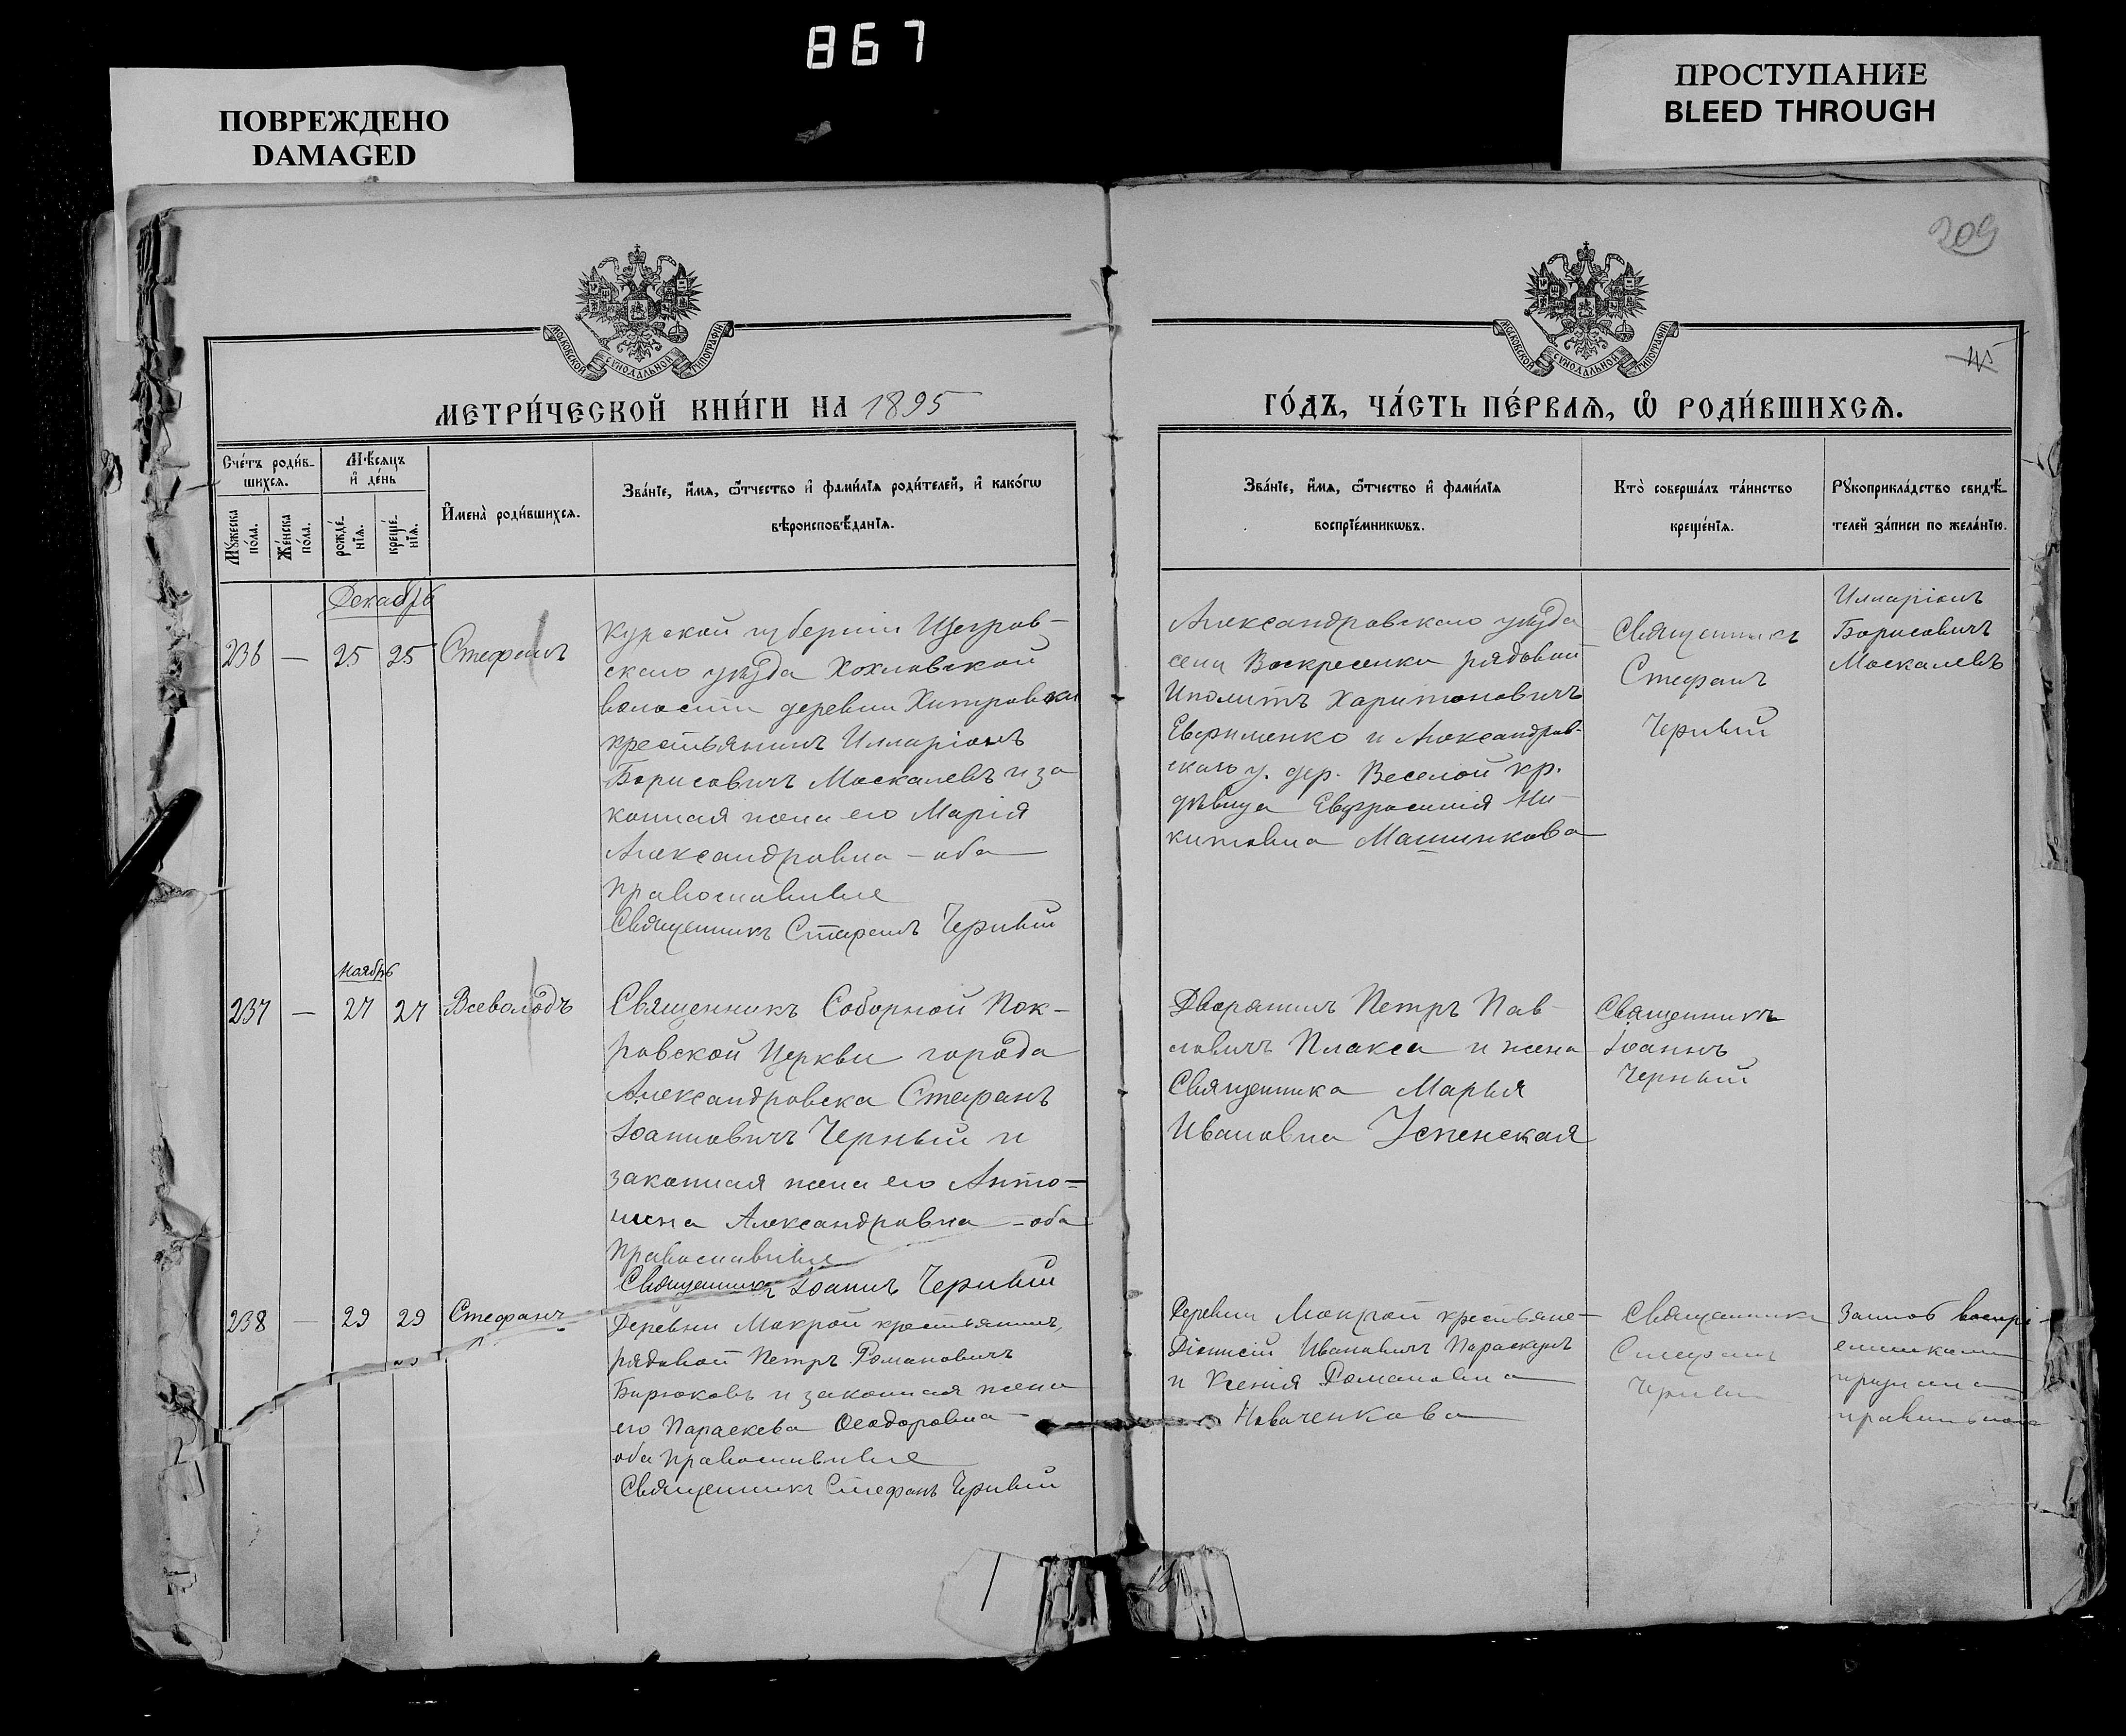 867
ПОВРЕЖДЕНО
DAMAGED
ПРОСТУПАНИЕ
BLEED THROUGH
209
МОСКОВСКОЙ СУНОДАЛЬНОЙ ТИПОГРАФІИ
МОСКОВСКОЙ СУНОДАЛЬНОЙ ТИПОГРАФІИ
МЕТРИ́ЧЕСКОЙ КНИ́ГИ НА 1895
ГО́ДЪ, ЧА́СТЬ ПЕ́РВАѦ, Ѽ РОДИ́ВШИХСѦ.
Сче́тъ роди́в-
шихсѧ.
Мѣ́сѧцъ
и҆ де́нь
Мꙋ́жеска
по́ла.
Же́нска
по́ла.
рожде́-
нїѧ.
креще́-
нїѧ.
И҆мена̀ роди́вшихсѧ.
Зва́нїе, и҆́мѧ, ѻ҆́тчество и҆ фами́лїѧ роди́телей, и҆ како́гѡ
вѣроисповѣ́данїѧ.
Зва́нїе, и҆́мѧ, ѻ҆́тчество и҆ фами́лїѧ
воспрїе́мникѡвъ.
Кто̀ соверша́лъ та́инство
креще́нїѧ.
Рꙋкоприкла́дство свидѣ́-
телей за́писи по жела́нїю.
Декабрь
236 — 25 25 Стефанъ
Курской губерніи Щегров-
скаго уѣзда Хохловской
волости деревни Хитровки
крестьянинъ Илларіонъ
Борисовичъ Москалевъ и за
конная жена его Марія
Александровна – оба
православные
Священникъ Стефанъ Черный
Александровскаго уѣзда
села Воскресенки рядовой
Иполитъ Харитоновичъ
Евфименко и Александров-
скаго у. дер. Веселой кр.
дѣвица Евфросинія Ни-
китовна Машинкова
Священникъ
Стефанъ
Черный
Илларіонъ
Борисовичъ
Москалевъ
Ноябрь
237 — 27 27 Всеволодъ
Священникъ Соборной Пок-
ровской Церкви города
Александровска Стефанъ
Іоанновичъ Черный и
законная жена его Анто-
нина Александровна – оба
православные
Священникъ Іоаннъ Черный
Дворянинъ Петръ Пав-
ловичъ Плакса и жена
Священника Марья
Ивановна Успенская
Священникъ
Іоаннъ
Черный
238 — 29 29 Стефанъ
Деревни Мокрой крестьянинъ,
рядовой Петръ Романовичъ
Бирюковъ и законная жена
его Параскева Ѳеодоровна
оба православные
Священникъ Стефанъ Черный
Деревни Мокрой крестьяне-
Діонисій Ивановичъ
и Ксенія Романовна
Священникъ
Стефанъ
Черный